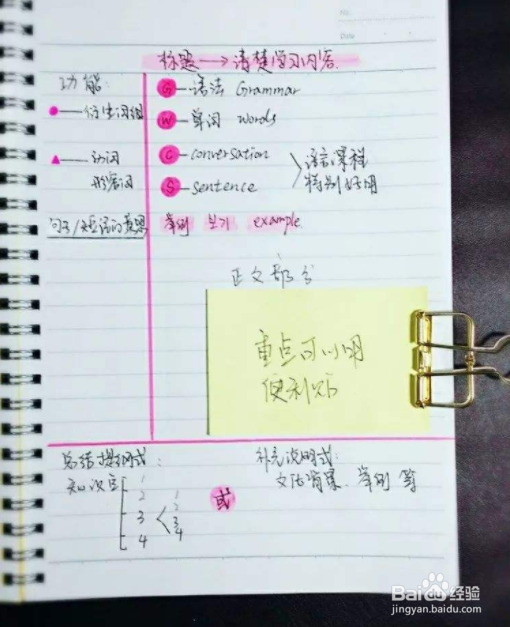 No.
Date
标题→清楚学习内容.
功能:
G—语法 Grammar
衍生词组
W—单词 words
C—conversation
动词
形容词
S—sentence
语言课程
特别好用
句子/短语的
举例 例 example
正文部分
重点可以用
便利贴
总结提纲式:
补充说明式:
知识点
文法背景、举例 等
1
2
3
4
1
2
3
4
或
Bai度经验
jingyan.baidu.com